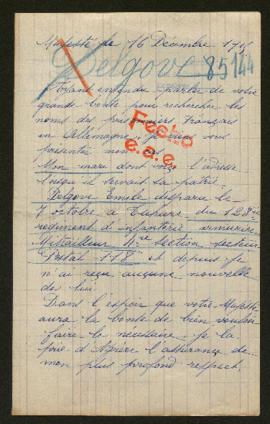 Majesté le 16 Décembre 191
Delgove 85144
Ayant entendu parler de votre
grande bonté pour rechercher les
noms des prisonniers français
en Allemagne je viens vous
Fecho
e.a.e.
Mon mari dont voici l'adresse
il servait la patrie
Delgove Emile disparu le
7 octobre à du 128e
régiment d'infanterie
Mitrailleur section secteur
Postal 118 et depuis je
n'ai reçu aucune nouvelle
de lui.
Dans l'espoir que votre Majesté
aura la bonté de bien vouloir
faire le nécessaire je la
prie d'agréer l'assurance de
mon plus profond respect.